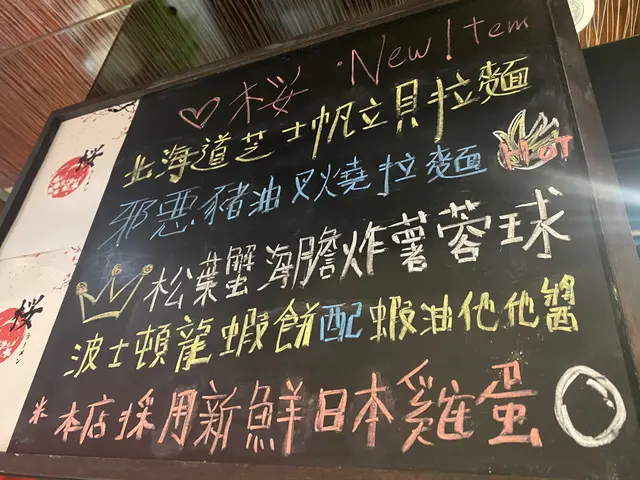 ♡桜 •New Item
北海道芝士帆立貝拉麵
邪惡豬油叉燒拉麵 HOT
松葉蟹海膽炸薯蓉球
波士頓龍蝦餅配蝦油他他醬
*本店採用新鮮日本雞蛋
桜
桜
ラーメン